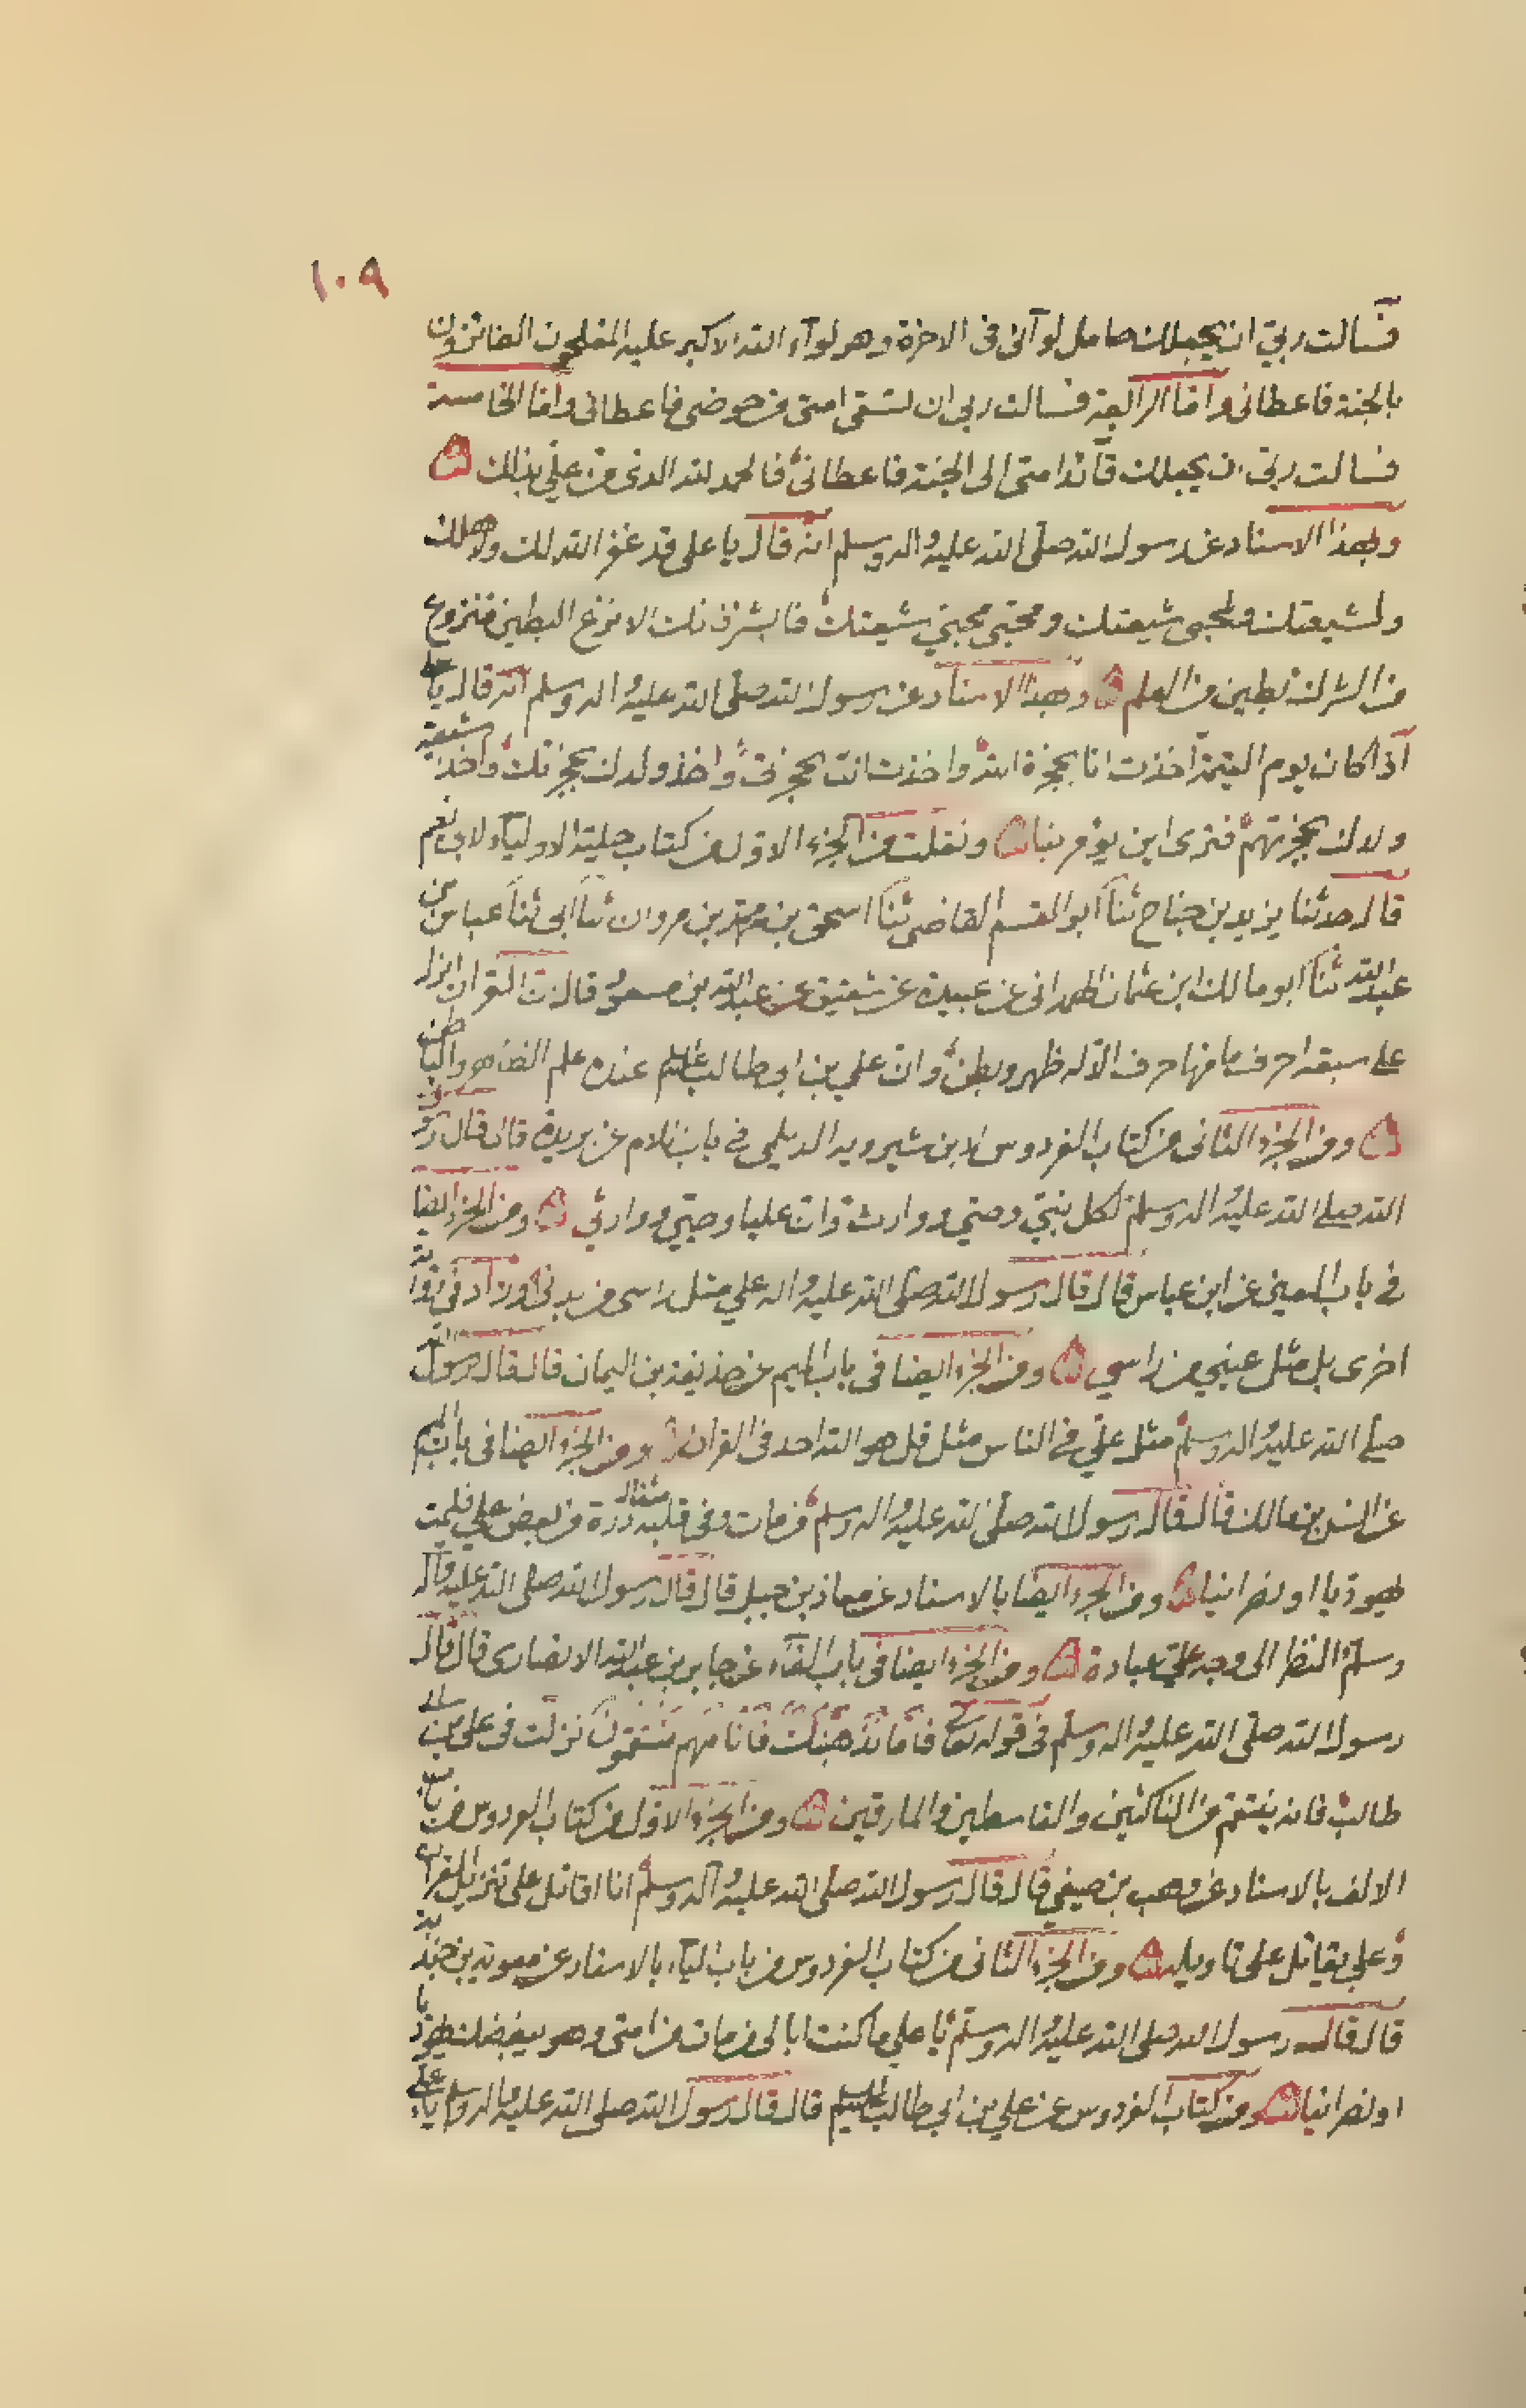 ١٠٩
فسالت ربي ان يجعلك حامل لوآئى فى الاخرة وهو لوآء الله الاكبر عليه المفلحون الفائزون
بالجنة فاعطانى واما الرابعة فسالت ربى ان تسقى امتى من حوضى فاعطانى واما الخامسة
فسالت ربى ان يجعلك قائد امتى الى الجنة فاعطانى فالحمد لله الذى من علي بذلك
وبهذا الاسناد عن رسول الله صلى الله عليه واله وسلم انه قال يا على قد غفر الله لك ولاهلك
ولشيعتك ولمحبى شيعتك ومحبى محبي شيعتك فابشر فانك الانزع البطين منزوع
من الشرك بطين من العلم وبهذا الاسناد عن رسول الله صلى الله عليه واله وسلم انه قال يا على
اذا كان يوم القيمة اخذت انا بحجزة الله واخذت انت بحجزتى واخذ ولدك بحجزتك واخذ شيعة
ولدك بحجزتهم فترى اين يؤمر بنا ونقلت من الجزء الاول من كتاب حلية الاولياء لابى نعيم
قال حدثنا يزيد بن جناح ثنا ابو القسم القاضى ثنا اسحق بن محمد بن مروان ثنا ابى ثنا عباس بن
عبد الله ثنا ابو مالك ابن عثمان الهمدانى عن عبيدة عن شقيق عن عبد الله بن مسعود قال ان القران انزل
على سبعة احرف ما منها حرف الا له ظهر وبطن وان علي بن ابى طالب عليه السلم عنده علم الظاهر والباطن
ومن الجزء الثانى من كتاب الفردوس لابن شيرويه الديلمي فى باب اللام عن بريدة قال قال رسول
الله صلى الله عليه واله وسلم لكل نبيّ وصي ووارث وان عليا وصيي ووارثي ومن الجزء ايضا
فى باب العين عن ابن عباس قال قال رسول الله صلى الله عليه واله علي مثل راسى من بدنى وزاد فى رواية
اخرى بل مثل عيني من راسي ومن الجزء ايضا فى باب الميم عن حذيفة بن اليمان قال قال رسول الله
صلى الله عليه واله وسلم مثل علي فى الناس مثل قل هو الله احد فى القران ومن الجزء ايضا فى باب الميم
عن انس بن مالك قال قال رسول الله صلى الله عليه واله وسلم من مات وفى قلبه مثقال ذرة من بغض علي فليمت
يهوديا او نصرانيا ومن الجزء ايضا بالاسناد عن معاذ بن جبل قال قال رسول الله صلى الله عليه واله
وسلم النظر الى وجه علي عبادة ومن الجزء ايضا فى باب الفاء عن جابر بن عبد الله الانصارى قال قال
رسول الله صلى الله عليه واله وسلم فى قوله تعالى فَاِمَّا نَذْهَبَنَّ بِكَ فَاِنَّا مِنْهُم مُّنْتَقِمُونَ نزلت فى على بن ابى
طالب فانه ينتقم من الناكثين والقاسطين والمارقين ومن الجزء الاول من كتاب الفردوس من باب
الالف بالاسناد عن وهب بن صيفي قال قال رسول الله صلى الله عليه واله وسلم انا اقاتل على تنزيل القران
وعلي يقاتل على تاويله ومن الجزء الثانى من كتاب الفردوس من باب الياء بالاسناد عن معوية بن حيدة
قال قال رسول الله صلى الله عليه واله وسلم يا علي ما كنت ابالى من مات من امتى وهو يبغضك يهوديا
او نصرانيا ومن كتاب الفردوس عن علي بن ابى طالب عليه السلم قال قال رسول الله صلى الله عليه واله وسلم يا على